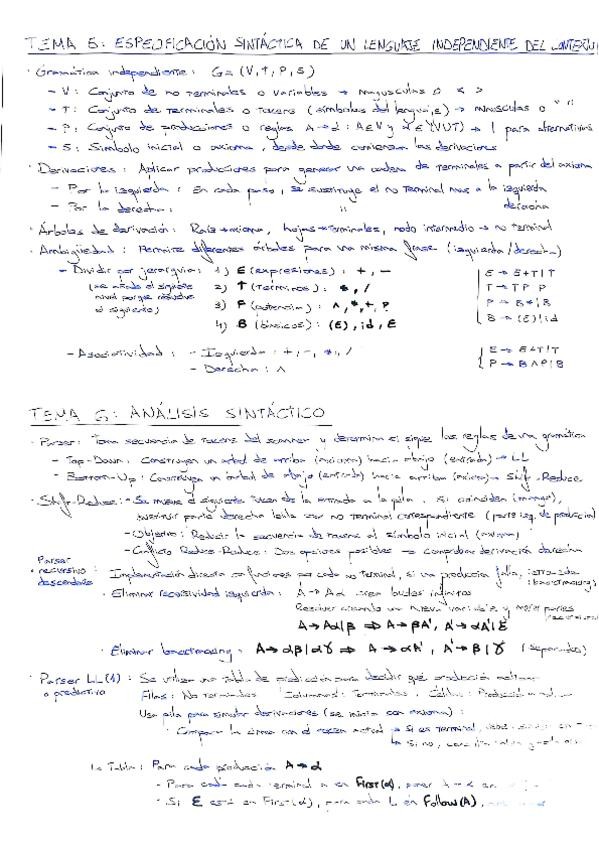 TEMA 5: ESPECIFICACIÓN SINTÁCTICA DE UN LENGUAJE INDEPENDIENTE DEL CONTEXTO
· Gramática independiente: G = (V, T, P, S)
- V: Conjunto de no terminales o variables → mayusculas o < >
- T: Conjunto de terminales o tokens (símbolos del lenguaje) → minusculas o " "
- P: Conjunto de producciones o reglas A → α : A ∈ V y α ∈ (VUT) → | para alternativas
- S: Símbolo inicial o axioma, desde donde comienzan las derivaciones
· Derivaciones: Aplicar producciones para generar una cadena de terminales a partir del axioma
- Por la izquierda: En cada paso, se sustituye el no terminal mas a la izquierda
- Por la derecha: " derecha
· Árboles de derivación: Raíz → axioma, hojas → terminales, nodo intermedio → no terminal
· Ambigüedad: Permite diferentes árboles para una misma frase (izquierda/derecha)
- Dividir por jerarquía: 1) E (expresiones): +, - E → E+T|T
(se añade el siguiente 2) T (términos): *, / T →
nivel porque resuelve 3) P (potencia): ^
el siguiente) 4) B (básicos): (E), id B → (E)|id
- Asociatividad: - Izquierda: +, -, *, / E → E+T|T
- Derecha: ^ P → B^P|B
TEMA 6: ANÁLISIS SINTÁCTICO
· Parser: Toma secuencia de tokens del scanner y determina si sigue las reglas de una gramática
- Top-Down: Construyen un árbol de arriba (axioma) hacia abajo (entrada) → LL
- Bottom-Up: Construyen un árbol de abajo (entrada) hacia arriba (axioma) → Shift-Reduce
· Shift-Reduce: - Se mueve el siguiente token de la entrada a la pila. Si coinciden
sustituir parte derecha por no terminal correspondiente (parte izq. de producción)
- Objetivo: Reducir la secuencia de tokens al símbolo inicial (axioma)
- Conflicto Reduce-Reduce: Dos opciones posibles → comprobar derivación derecha
Parser
recursivo descendente: Implementación directa con funciones por cada no terminal, si una producción falla, (backtracking)
· Eliminar recursividad izquierda: A → Aα crea bucles infinitos
Resolver creando un nueva variable y
A → Aα|β ⇒ A → βA', A' → αA'|ε
· Eliminar backtracking: A → αβ|αγ ⇒ A → αA', A' → β|γ (separados)
· Parser LL(1) o predictivo: Se utiliza una tabla de predicción para decidir qué producción
Filas: No terminales Columnas: Terminales Celdas: Producción
Usa pila para simular derivaciones (se inicia con axioma):
· Comparar la cima con el token actual → Si es terminal,
↳ Si no,
↳ Tabla: Para cada producción A → α
- Para cada terminal a en First(α), poner A → α en
- Si ε está en First(α), para cada en Follow(A),